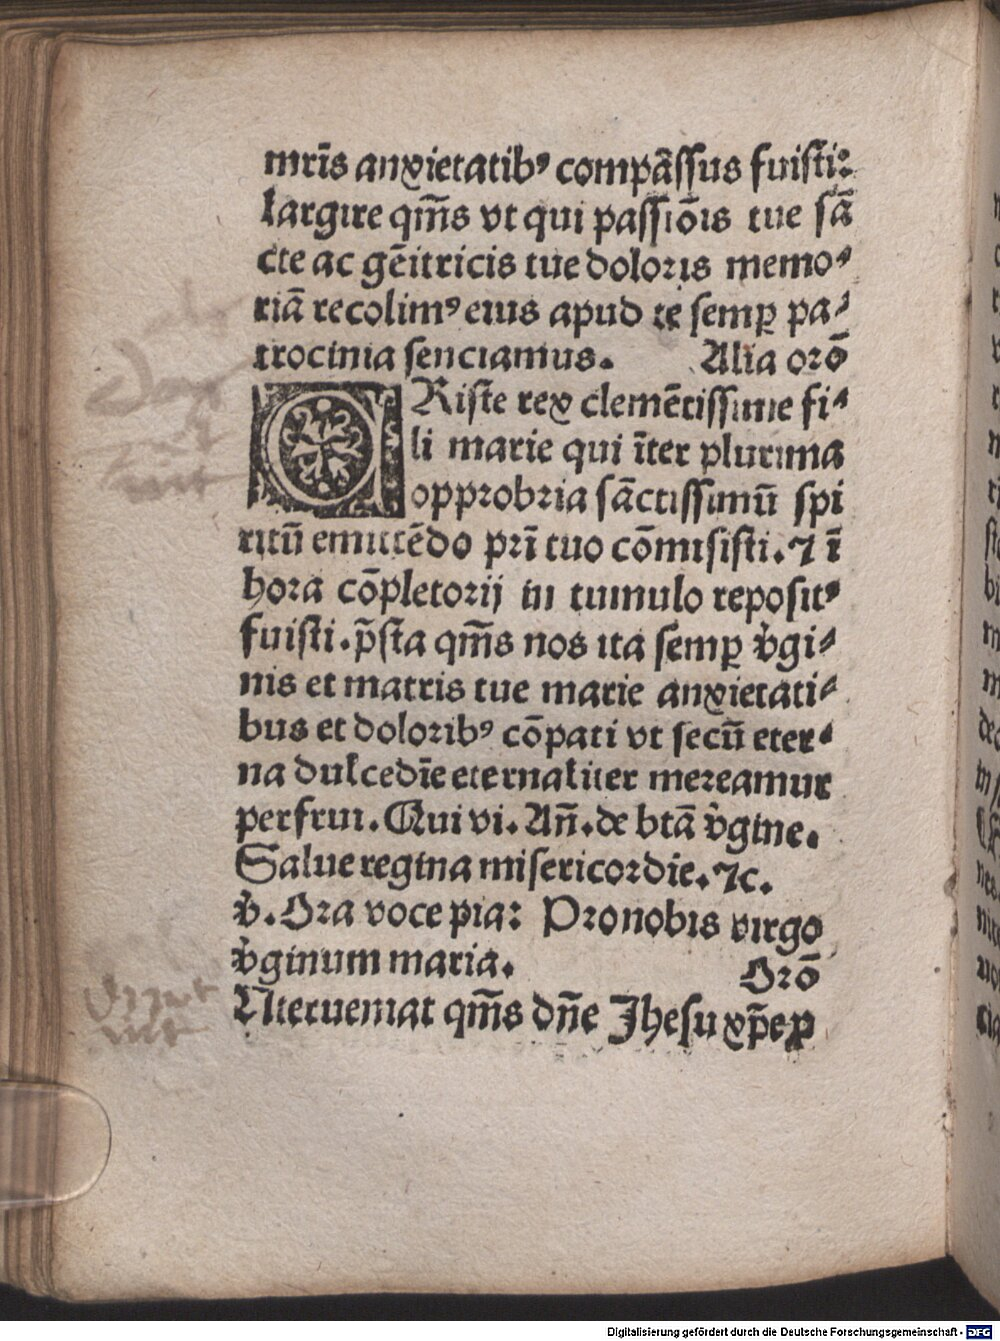 mr̄is anxietatibꝰ compāssus fuisti:
largire qm̄s vt qui passiōis tue sā
cte ac gēitricis tue doloris memo⸗
riā recolimꝰ eius apud te semꝑ pa⸗
trocinia senciamus. Alia orō
CRiste rex clemētissime fi⸗
li marie qui īter plurima
opprobria sāctissimū spi
ritū emittēdo pr̄i tuo cōmisisti. ⁊ ī
hora cōpletorij in tumulo repositꝰ
fuisti. p̄sta qm̄s nos ita semꝑ v̓gi⸗
nis et matris tue marie anxietati⸗
bus et doloribꝰ cōpati vt secū eter⸗
na dulcedīe eternaliter mereamur
perfrui. Qui vi. Añ. de btā v̓gine.
Salue regina misericordie. ⁊c.
v̓. Ora voce pia: Pronobis virgo
v̓ginum maria. Orō
NTerueniat qm̄s dn̄e Jhesu xp̄e ꝑ
Digitalisierung gefördert durch die Deutsche Forschungsgemeinschaft - DFG